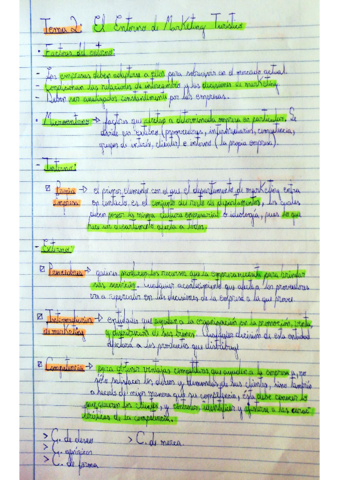 Tema 2: El Entorno de Marketing Turístico
• Factores del entorno:
- Las empresas deben adaptarse a ellos para sobrevivir en el mercado actual.
- Condicionan las relaciones de intercambio y las decisiones de marketing
- Deben ser analizados constantemente por las empresas.
• Microentorno → factores que afectan a determinada empresa en particular. Se
divide en externo (proveedores, intermediarios, competencia,
grupos de interés, clientes) e interno (la propia empresa).
- Interno:
Propia empresa → el primer elemento con el que el departamento de marketing entra
en contacto es el conjunto del resto de departamentos, los cuales
deben poseer la misma cultura empresarial o ideología, pues lo que
hace un departamento afecta a todos.
- Externo:
Proveedores → quienes producen los recursos que la empresa necesita para brindar
sus servicios. Cualquier acontecimiento que afecte a los proveedores
va a repercutir en las decisiones de la empresa a la que provee.
Intermediarios de marketing → entidades que ayudan a la organización en la promoción, venta
y distribución de sus bienes. Cualquier decisión de esta entidad
afectará a los productos que distribuya.
Competencia → para obtener ventajas competitivas que ayuden a la empresa a no
sólo satisfacer los deseos y demandas de sus clientes, sino también
a hacerlo de mejor manera que su competencia, ésta debe conocer lo
que quieren los clientes, y también, identificar y adaptarse a las
estrategias de la competencia.
> C. de deseo > C. de marca.
> C. genérica
> C. de forma